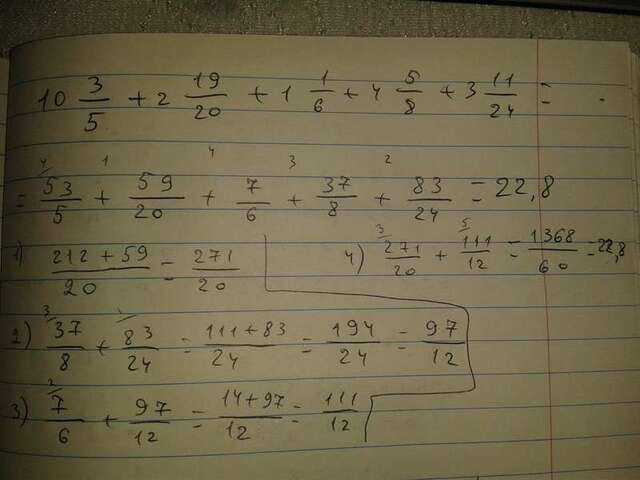 10 3/5 + 2 19/20 + 1 1/6 + 4 5/8 + 3 11/24 =
4 1 4 3 2
= 53/5 + 59/20 + 7/6 + 37/8 + 83/24 = 22,8
1) (212 + 59)/20 = 271/20
4) 3 271/20 + 5 111/12 = 1368/60 = 22,8
2) 3 37/8 + 83/24 = (111 + 83)/24 = 194/24 = 97/12
3) 2 7/6 + 97/12 = (14 + 97)/12 = 111/12